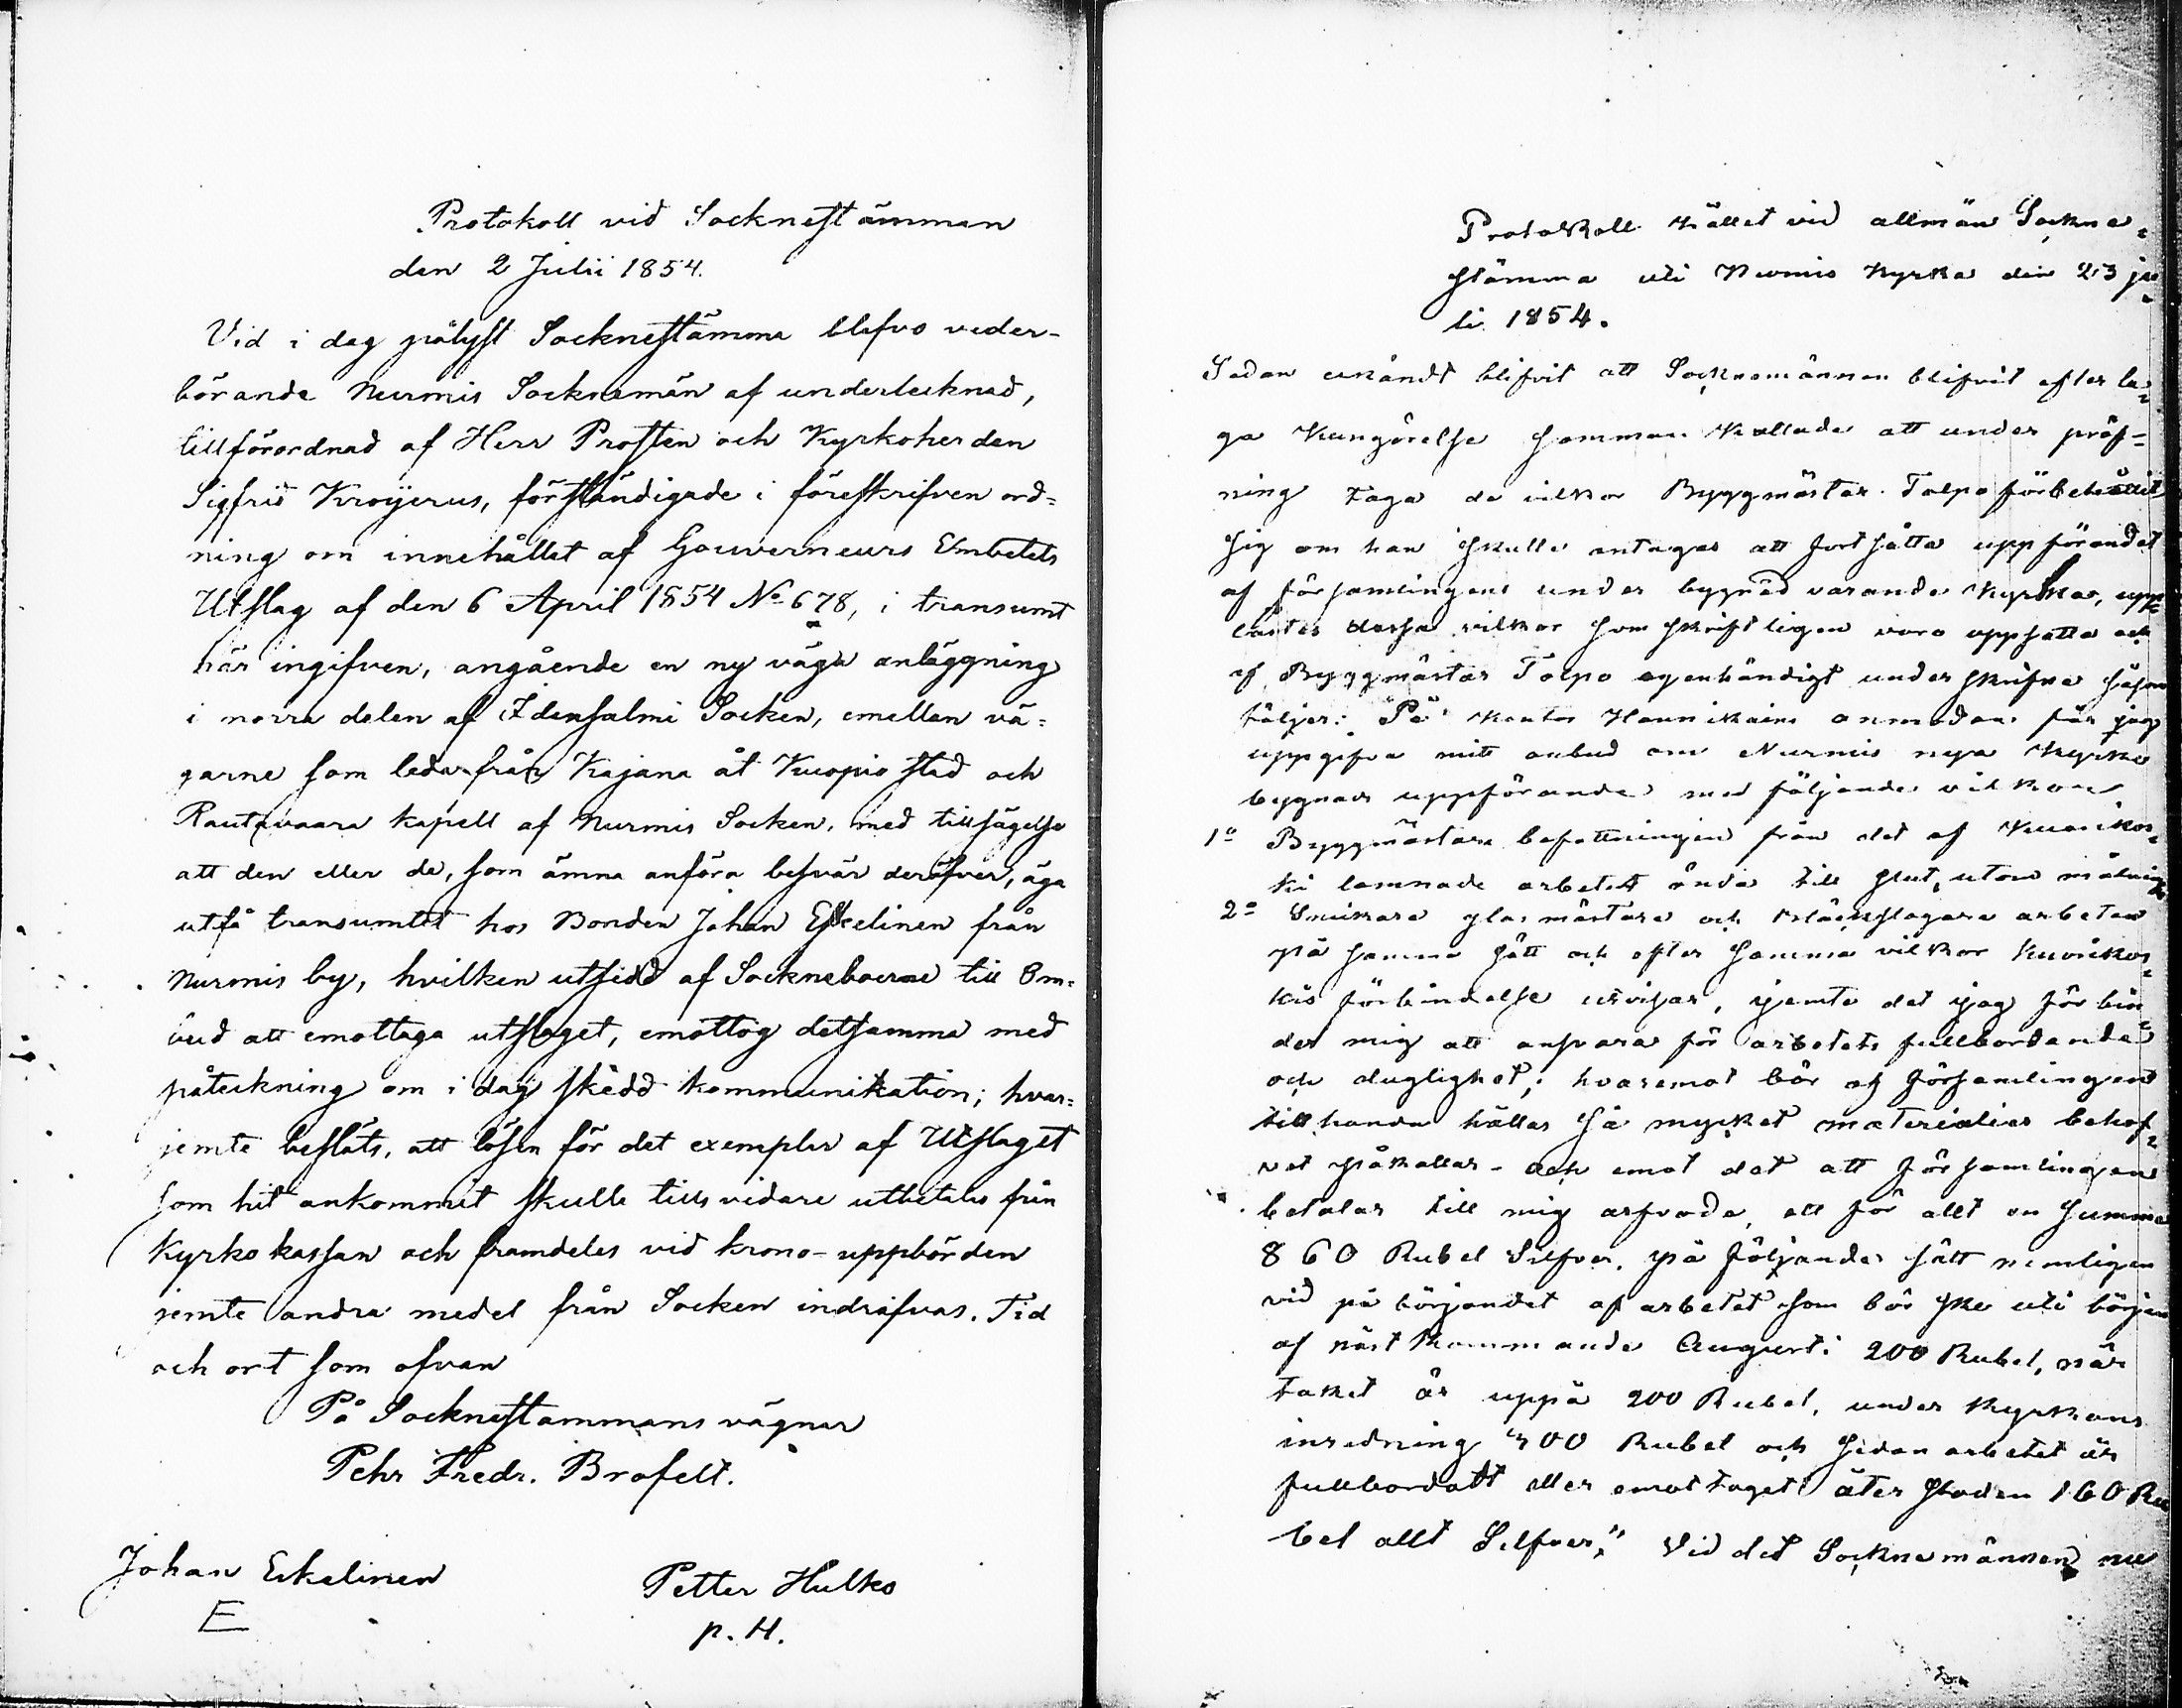 Protokoll vid Sockneständman
den 2 Julii 1854.
Vid i dag pålyst Socknestämma blefvo veder-
börande Nurmis Socknemän af undertecknad,
tillförordnad af Herr Prosten och Kyrkoherden
Sigfrid Kroyerus, förständigade i föreskrifven ord=
ning om innehållet af Gouverneurs Embetets
Utslag af den 6 April 1854 No 678, i transumt
här ingifven, angående en ny vägs anläggning
i norra delen af Idensalmi Socken, emellan vä=
garne som leda från Kajana åt Kuopio stad och
Rautavaara kapell af Nurmis Socken, med tillsägelse
att den eller de, som ämna anföra besvär deröfver, äga
utfå transumtet hos Bonden Johan Eskelinen från
Nurmis by, hvilken utsedd af Sockneboerne till Om=
bud att emottaga utslaget, emottog detsamma med
påteckning om i dag skedd kommunikation; hvar=
jemte beslöts, att lösen för det exemplar af Utslaget
som hit ankommit skulle tills vidare utbetalas från
Kyrkokassan och framdeles vid krono-uppbörden
jemte andra medel från Socken indrifvas. Tid
och ort som ofvan
På Socknestammans vägnar
Pehr Fredr. Brofelt.
Johan Eskelinen
E
Petter Hulko
p. H.
Protokoll hållet vid allmän Sockne=
stämma uti Nurmis Kyrka den 23 ju=
li 1854.
Sedan utrönt blifvit att Socknemännen blifvit efter la=
ga Kungörelse samman kallade att under pröf=
ning taga de vilkor Byggmästar Tolpo förbehållit
sig om han skulle antagas att fortsätta uppförandet
af församlingens under bygnad varande Kyrka, upp=
lästes dessa vilkor som skriftligen voro uppsatta och
af Byggmästar Tolpo egenhändigt underskrifne såsom
följer: På kantor Hannikains anmodan får jag
uppgifva mitt anbud om Nurmis nya Kyrko
bygnads uppförande med följande vilkor.
1o Byggmästare befattningen från det af Kuorikos=
ki lamnade arbetet ända till slut, utom målning
2o Snickare glasmästare och bläckslagare arbeten
på samma sätt och efter samma vilkor Kuorikos=
kis förbindelse utvisar, jemte det jag förbin=
der mig att ansvara för arbetets fullbordande
och duglighet; hvaremot bör af församlingen
tillhanda hållas så mycket materialier behof=
vet påkallar - och emot det att församlingen
betalar till mig arfvode, ett för allt en summa
860 Rubel Silfver, på följande sätt nemligen
vid påbörjandet af arbetet som bör ske uti början
af nästkommande Augusti 200 Rubel, när
taket är uppå 200 Rubel, under Kyrkans
inredning 300 Rubel och sedan arbetet är
fullbordatt eller emottaget åter stoden 160 Ru
bel allt Silfver," Vid det Socknemännen nu